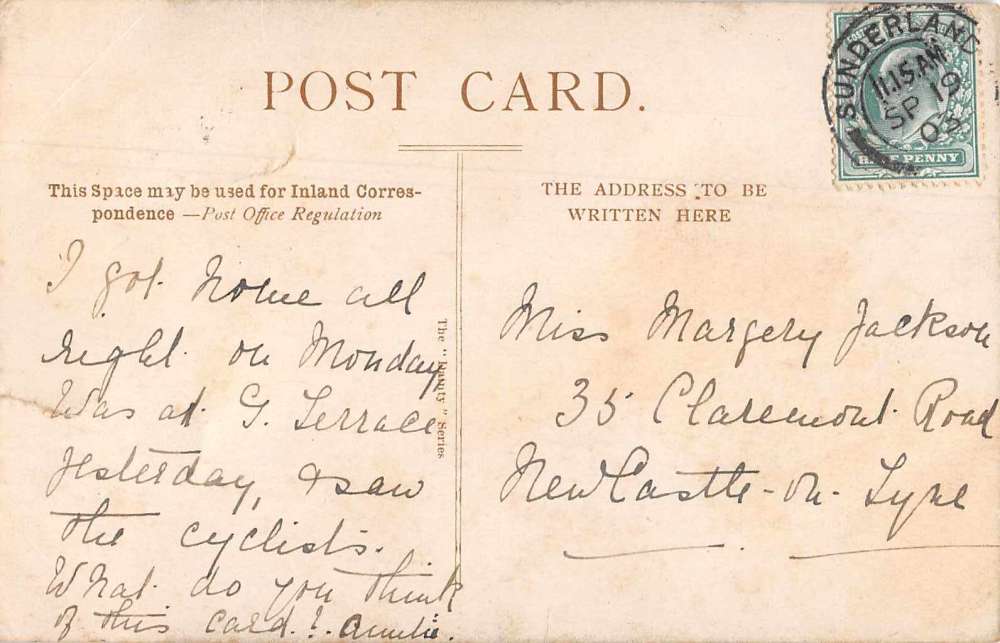 POST CARD.
This Space may be used for Inland Corres-
pondence —Post Office Regulation
THE ADDRESS TO BE
WRITTEN HERE
SUNDERLAND
11.15.AM
SP 19
HALF PENNY
The "Beauty" Series
I got home all
right on Monday,
Was at G. Terrace
yesterday, & saw
the cyclists.
What do you think
of this card.? Auntie.
Miss Margery Jackson
35 Claremont Road
NewCastle-on-Tyne